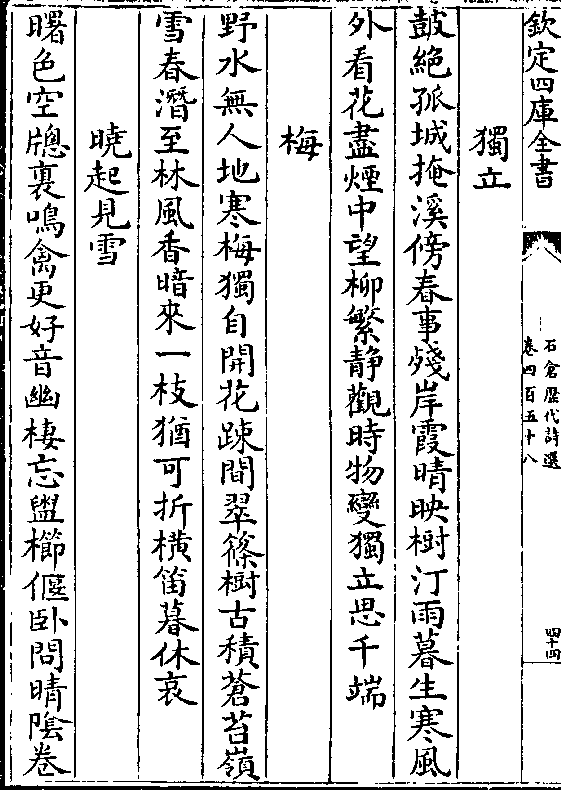 欽定四庫全書
石倉歴代詩選
卷四百五十八
四十四
獨立
鼓絶孤城掩溪傍春事殘岸霞晴映樹汀雨暮生寒風
外看花盡煙中望柳繁静觀時物變獨立思千端
梅
野水無人地寒梅獨自開花疎間翠篠樹古積蒼苔嶺
雪春潛至林風香暗來一枝猶可折横笛暮休哀
曉起見雪
曙色空牕裏鳴禽更好音幽棲忘盥櫛偃卧問晴隂卷